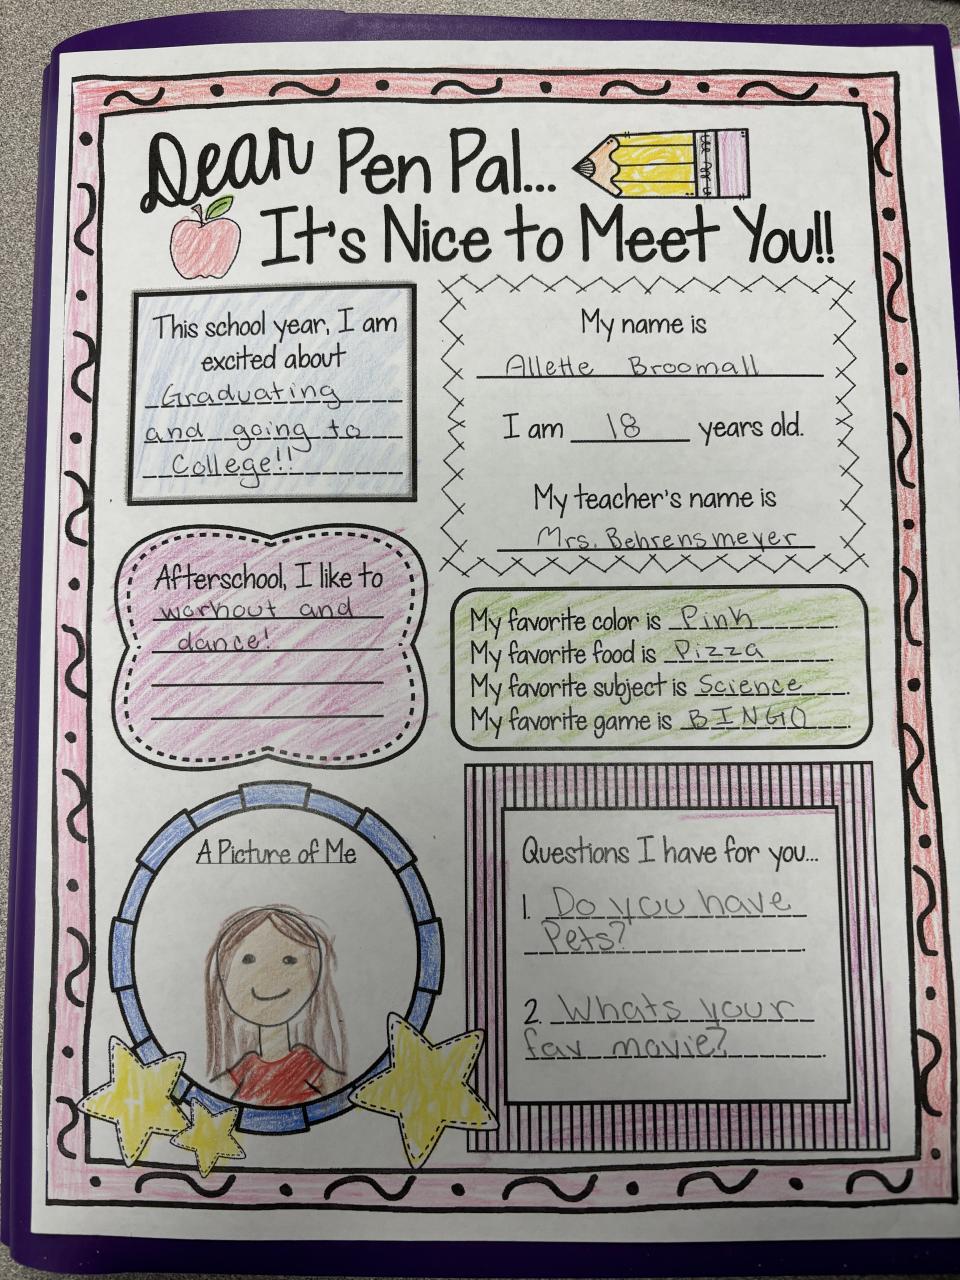 Dear Pen Pal...
It's Nice to Meet You!!
This school year, I am
excited about
Graduating
and going to
College!!
My name is
Allette Broomall
I am 18 years old.
My teacher's name is
Mrs. Behrensmeyer
Afterschool, I like to
workout and
dance!
My favorite color is Pink
My favorite food is Pizza
My favorite subject is Science
My favorite game is BINGO
A Picture of Me
Questions I have for you...
1. Do you have
Pets?
2. Whats your
fav movie?